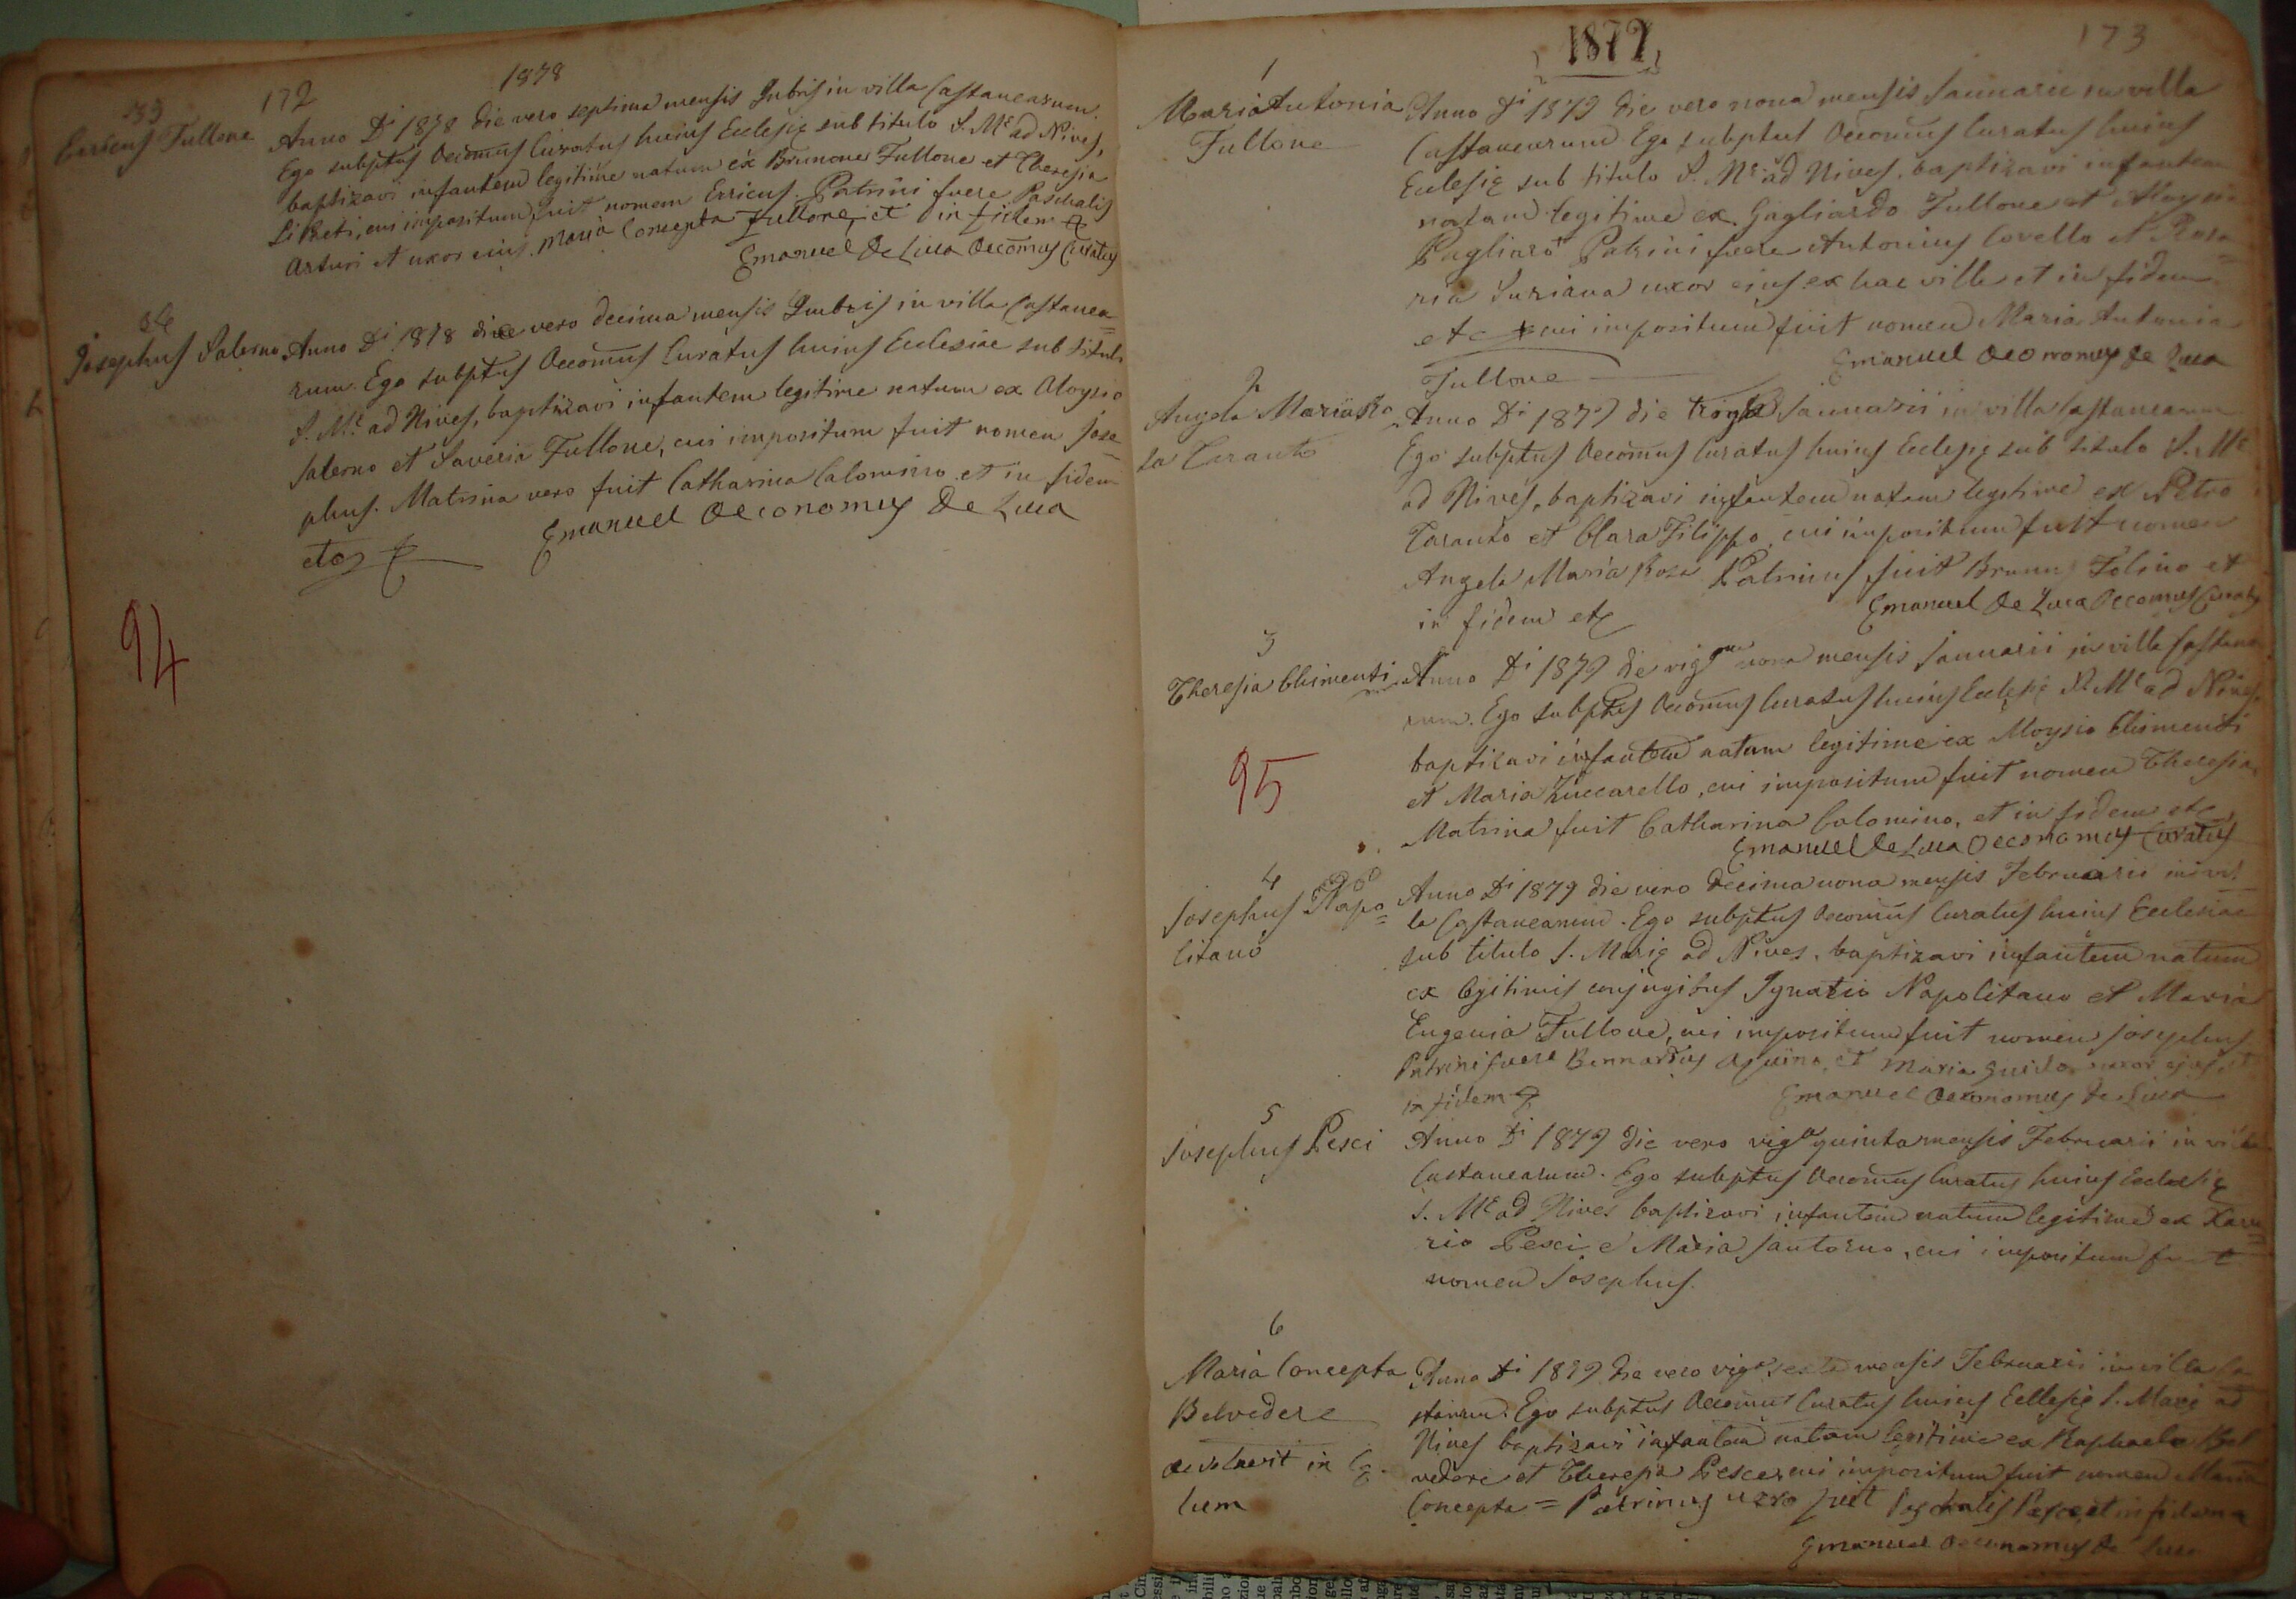 172
1878
33
Erricus Fullone
Anno Di 1878 die vero septima mensis Xmbris in villa Castanearum.
Ego subptus Oeconus Curatus huius Eclesię sub titulo S. Me ad Nives,
baptizavi infantem legitime natum ex Brunone Fullone et Theresia
Liketi, cui impositum fuit nomen Erricus. Patrini fuere Paschalis
Arturi et uxor eius Maria Concepta Fullone, et in fidem
Emanuel De Luca Oeconus Curatus
34
Josephus Salerno
Anno Di 1878 die vero decima mensis Xmbris in villa Castanea=
rum. Ego subptus Oeconus Curatus huius Eclesiae sub titulo
S. Me ad Nives, baptizavi infantem legitime natum ex Aloysio
Salerno et Saveria Fullone, cui impositum fuit nomen Jose=
phus. Matrina vero fuit Catharina Calomino et in fidem
etc
Emanuel Oeconomus De Luca
94
1879
173
1
Maria Antonia
Fullone
Anno Di 1879 die vero nona mensis Januarii in villa
Castanearum Ego subptus Oeconus Curatus huius
Eclesię sub titulo S. Me ad Nives, baptizavi infantem
natam legitime ex Gagliardo Fullone et Aloysia
Pagliaro Patrini fuere Antonius Covello et Rosa=
ria Suriana uxor eius ex hac villa et in fidem
etc cui impositum fuit nomen Maria Antonia
Fullone
Emanuel Oeconomus De Luca
2
Angela Maria Ro
sa Taranto
Anno Di 1879 die Januarii in villa Castanearum
Ego subptus Oeconus Curatus huius Eclesię sub titulo S. Me
ad Nives, baptizavi infantem natam legitime ex Petro
Taranto et Clara Filippo, cui impositum fuit nomen
Angela Maria Rosa Patrinus fuit Brunus Folino et
in fidem etc
Emanuel De Luca Oeconus Curatus
3
Theresia Chimenti
Anno Di 1879 die nona mensis Januarii in villa Castanea
rum. Ego subptus Oeconus Curatus huius Eclesię S. Me ad Nives,
baptizavi infantem natam legitime ex Aloysio Chimenti
et Maria Zuccarello, cui impositum fuit nomen Theresia.
Matrina fuit Catharina Calomino, et in fidem etc
Emanuel De Luca Oeconomus Curatus
95
4
Josephus Napo=
litano
Anno Di 1879 die vero decima nona mensis Februarii in vil
la Castanearum. Ego subptus Oeconus Curatus huius Eclesiae
sub titulo S. Marię ad Nives, baptizavi infantem natum
ex legitimis conjugibus Ignatio Napolitano et Maria
Eugenia Fullone, cui impositum fuit nomen Josephus
Patrini fuere Bernardus Aquino, et Maria Guido uxor ejus, et
in fidem
Emanuel Oeconomus De Luca
5
Josephus Pesci
Anno Di 1879 die vero viga quinta mensis Februarii in villa
Castanearum. Ego subptus Oeconus Curatus huius Eclesię
S. Me ad Nives baptizavi infantem natum legitime ex
rio Pesci e Maria Santorno, cui impositum fuit
nomen Josephus.
6
Maria Concepta
Belvedere
Anno Di 1879 die vero viga sexta mensis Februarii in villa Ca
starum. Ego subptus Oeconus Curatus huius Eclesię S. Marię ad
Nives baptizavi infantem natam legitime ex Raphaele Bel
vedere et Theresia Pesce, cui impositum fuit nomen Maria
Concepta = Patrinus vero fuit Paschalis Pesce, et in fidem
Emanuel Oeconomus De Luca
in Cę
lum